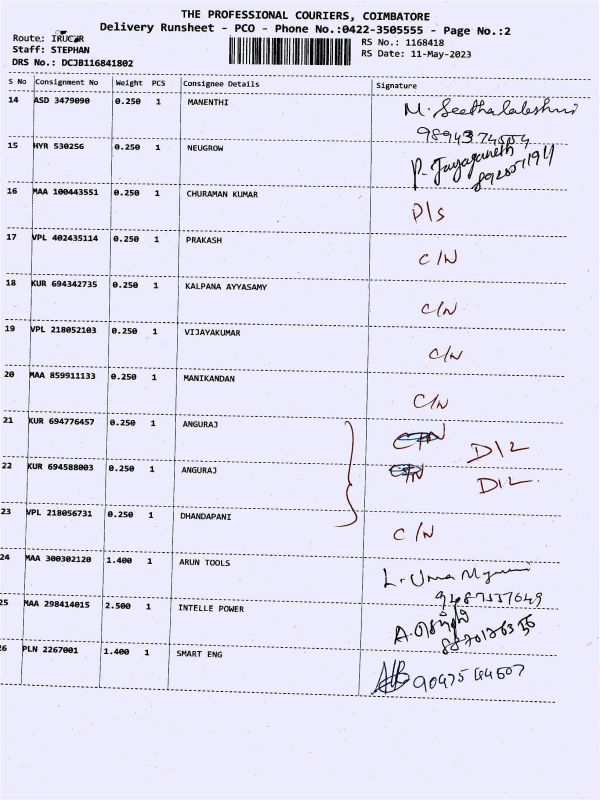 THE PROFESSIONAL COURIERS, COIMBATORE
Delivery Runsheet - PCO - Phone No.:0422-3505555 - Page No.:2
Route: IRUGUR
RS No.: 1168418
Staff: STEPHAN
RS Date: 11-May-2023
DRS No.: DCJB116841802
S No Consignment No Weight PCS Consignee Details Signature
14 ASD 3479090 0.250 1 MANENTHI M. Seethalakshmi
9894374554
15 HYR 530256 0.250 1 NEUGROW P. Jayaganesh
16 MAA 100443551 0.250 1 CHURAMAN KUMAR D/S
17 VPL 402435114 0.250 1 PRAKASH C/N
18 KUR 694342735 0.250 1 KALPANA AYYASAMY C/N
19 VPL 218052103 0.250 1 VIJAYAKUMAR C/N
20 MAA 859911133 0.250 1 MANIKANDAN C/N
21 KUR 694776457 0.250 1 ANGURAJ C/N D/L
22 KUR 694588003 0.250 1 ANGURAJ C/N D/L
23 VPL 218056731 0.250 1 DHANDAPANI C/N
24 MAA 300302120 1.400 1 ARUN TOOLS L. Uma
25 MAA 298414015 2.500 1 INTELLE POWER
26 PLN 2267001 1.400 1 SMART ENG